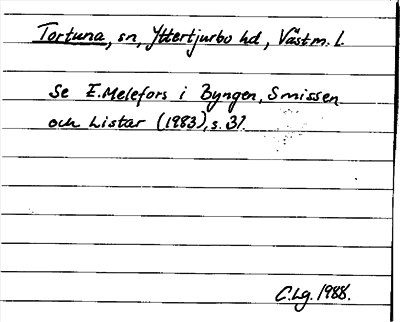 Tortuna, sn, Yttertjurbo hd, Västm. l.
Se E. Melefors i Byngen, Smissen
och Listar (1983), s. 37.
C.Lg. 1988.